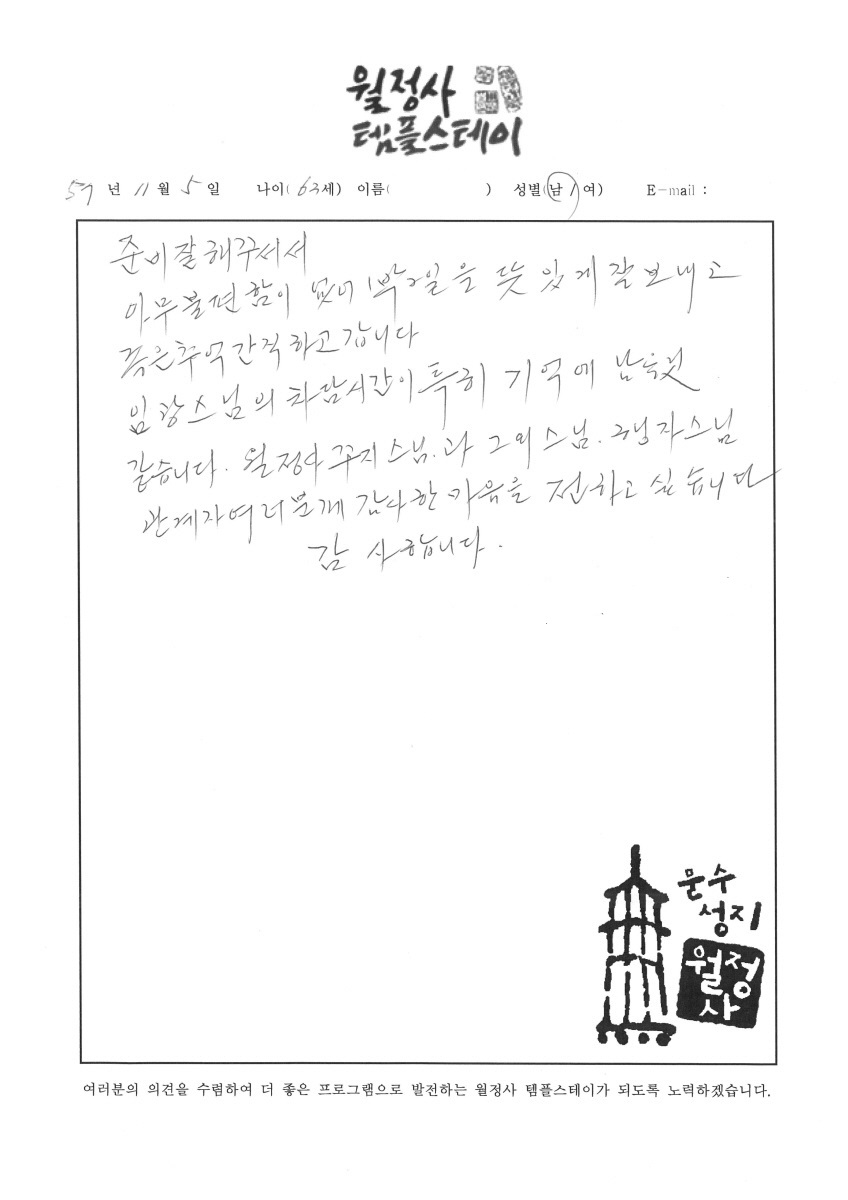 월정사
템플스테이
59 년 11 월 5 일 나이( 63세) 이름( ) 성별(남 / 여) E-mail :
준비잘해주셔서
아무불편함이 없이 1박2일을 뜻 있게 잘 보내고
좋은추억간직하고갑니다
스님의 차담시간이 특히 기억에 남을것
같습니다. 월정사 주지스님.과 그외스님. 행자스님
관계자여러분께 감사한 마음을 전하고 싶습니다
감 사합니다.
문수
성지
월정
사
여러분의 의견을 수렴하여 더 좋은 프로그램으로 발전하는 월정사 템플스테이가 되도록 노력하겠습니다.